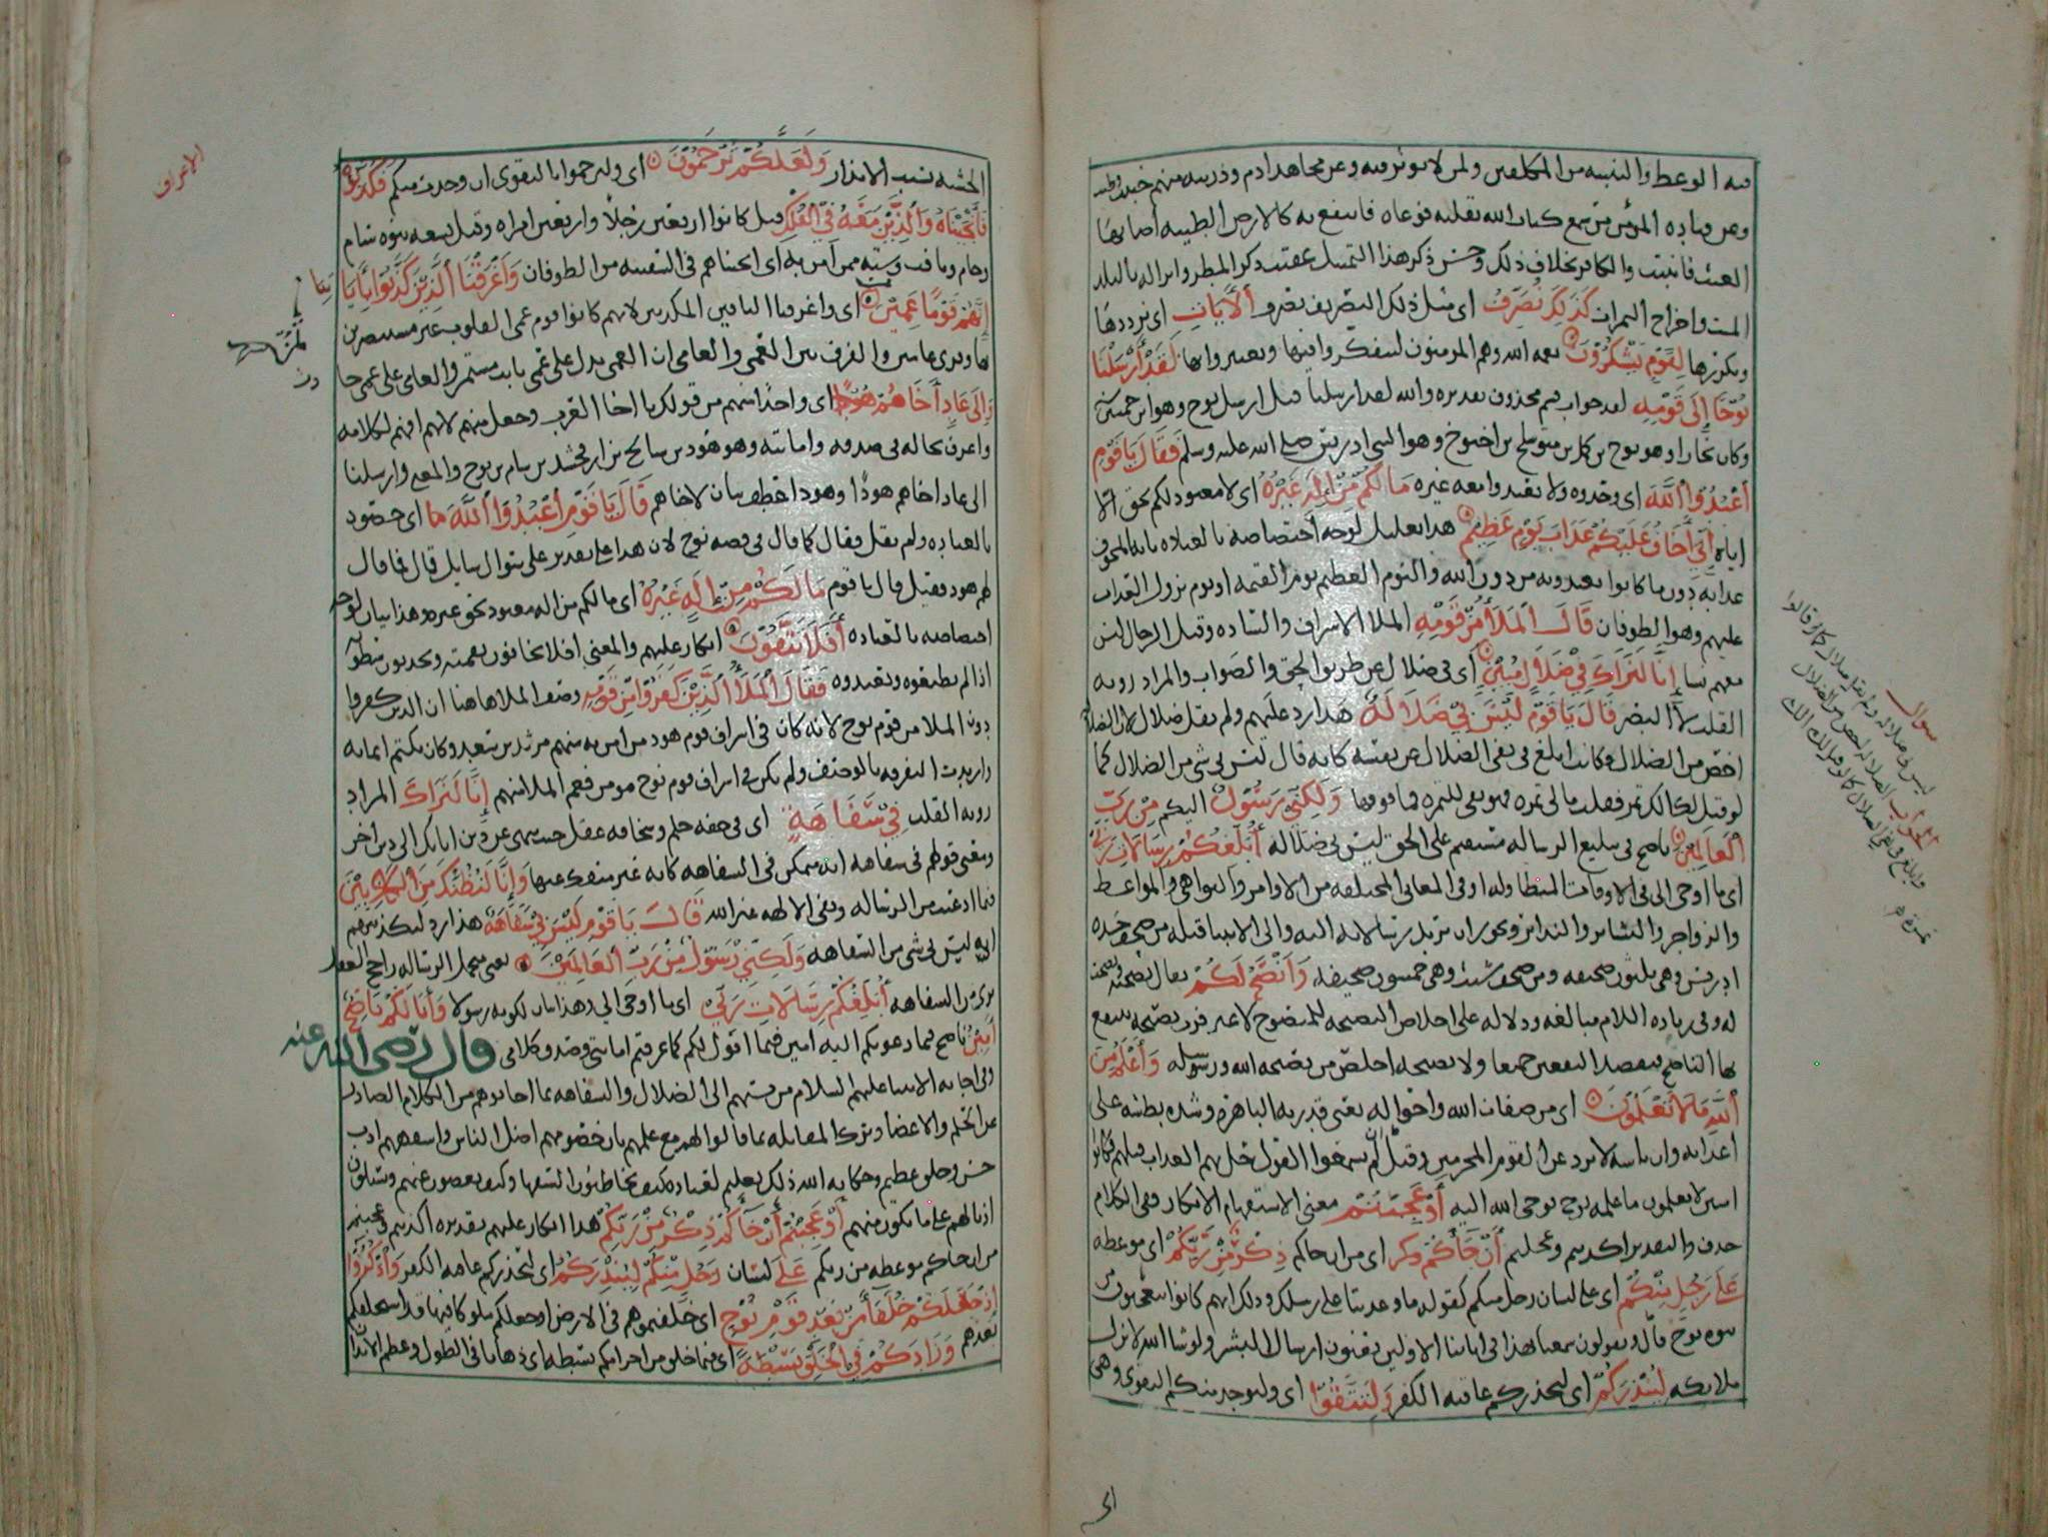 فيه الوعظ والتنبيه من المكلفين ولمن لا يوثر فيه وعن مجاهد ادم وذريته منهم خبيث وطيب
وعن قتاده المؤمن سمع كتاب الله بقلبه فوعاه فانتفع به كالارض الطيبه اصابها
الغيث فانبتت والكافر بخلاف ذلك وحسن ذكر هذا التمثيل عقيب ذكر المطر وانزاله بالبلد
الميت واخراج الثمرات كَذَلِكَ نُصَرِّفُ اي مثل ذلك التصريف نصرف الْآيَاتِ اي نرددها
ونكررها لِقَوْمٍ يَشْكُرُونَ نعمه الله وهم المومنون ليتفكروا فيها ويعتبروا بها لَقَدْ أَرْسَلْنَا
نُوحًا إِلَى قَوْمِهِ لقد جواب قسم محذوف تقديره والله لقد ارسلنا قيل ارسل نوح وهو ابن خمسين
وكان نجارا وهو نوح بن لمك بن متوشلح بن اخنوخ وهو النبي ادريس صلى الله عليه وسلم فَقَالَ يَا قَوْمِ
اعْبُدُوا اللَّهَ اي وحدوه ولا تعبدوا معه غيره مَا لَكُمْ مِنْ إِلَهٍ غَيْرُهُ اي لا معبود لكم بحق الا
اياه إِنِّي أَخَافُ عَلَيْكُمْ عَذَابَ يَوْمٍ عَظِيمٍ هذا تعليل لوجه اختصاصه بالعباده بانه المخوف
عذابه دون ما كانوا يعبدونه من دون الله واليوم العظيم يوم القيمه او يوم نزول العذاب
عليهم وهو الطوفان قَالَ الْمَلَأُ مِنْ قَوْمِهِ الملا الاشراف والساده وقيل الرجال ليس
معهم نسا إِنَّا لَنَرَاكَ فِي ضَلَالٍ مُبِينٍ اي في ضلال عن طريق الحق والصواب والمراد رويه
القلب لا البصر قَالَ يَا قَوْمِ لَيْسَ بِي ضَلَالَةٌ هذا رد عليهم ولم يقل ضلال لان الضلاله
اخص من الضلال وكانت ابلغ في نفي الضلال عن نفسه كانه قال ليس بي شي من الضلال كما
لو قيل لك الك تمر فقلت ما لي تمره وَلَكِنِّي رَسُولٌ اليكم مِنْ رَبِّ
الْعَالَمِينَ ناصح في تبليغ الرساله مستقيم على الحق ليس بي ضلاله أُبَلِّغُكُمْ رِسَالَاتِ رَبِّي
اي ما اوحي الي في الاوقات المتطاوله او في المعاني المختلفه من الاوامر والنواهي والمواعظ
والزواجر والبشاير والنذاير ويجوز ان يريد رسالاته اليه والى الانبيا قبله من صحف جده
ادريس وهي ثلثون صحيفه ومن صحف شيث وهي خمسون صحيفه وَأَنْصَحُ لَكُمْ يقال نصحته ونصحت
له وفي زياده اللام مبالغه ودلاله على اخلاص النصيحه للمنصوح لا غير فرب نصيحه ينتفع
بها الناصح فيقصد النفعين جميعا ولا نصيحه اخلص من نصيحه الله ورسوله وَأَعْلَمُ مِنَ
اللَّهِ مَا لَا تَعْلَمُونَ اي من صفات الله واحواله يعني قدرته الباهره وشده بطشه على
اعدايه وان باسه لا يرد عن القوم المجرمين وقيل لم يسمعوا بقوم حل بهم العذاب قبلهم فكانوا
امنين لا يعلمون ما علمه نوح بوحي الله اليه أَوَعَجِبْتُمْ معنى الاستفهام الانكار وفي الكلام
حذف والتقدير اكذبتم وعجبتم أَنْ جَاءَكُمْ ذكر اي من ان جاكم ذِكْرٌ مِنْ رَبِّكُمْ اي موعظه
عَلَى رَجُلٍ مِنْكُمْ اي على لسان رجل منكم كقوله ما وعدتنا على رسلك وذلك انهم كانوا يتعجبون من
نبوه نوح قال ويقولون ما سمعنا بهذا في اباينا الاولين يعنون ارسال البشر ولو شا الله لانزل
ملايكه لِيُنْذِرَكُمْ اي ليحذركم عاقبه الكفر وَلِتَتَّقُوا اي وليوجد منكم التقوى وهي
سوال
ليس في ضلاله ولم يقل ضلال كما قالوا
الجواب الضلاله اخص من الضلال
الاعراف
الخشيه بسبب الانذار وَلَعَلَّكُمْ تُرْحَمُونَ اي ولترحموا بالتقوى ان وجدت منكم فَكَذَّبُوهُ
فَأَنْجَيْنَاهُ وَالَّذِينَ مَعَهُ فِي الْفُلْكِ قيل كانوا اربعين رجلا واربعين امراه وقيل تسعه بنوه سام
وحام ويافث وسته ممن آمن به اي انجيناهم في السفينه من الطوفان وَأَغْرَقْنَا الَّذِينَ كَذَّبُوا بِآيَاتِنَا
إِنَّهُمْ كَانُوا قَوْمًا عَمِينَ اي واغرقنا الباقين المكذبين لانهم كانوا قوم عمي القلوب غير مستبصرين
وقري عامين والفرق بين العمي والعامي ان العمي يدل على عمى ثابت مستمر والعامي على عمى حا
دث
وَإِلَى عَادٍ أَخَاهُمْ هُودًا اي واحدا منهم من قولك يا اخا العرب وجعل منهم لانهم افهم لكلامه
واعرف بحاله في صدقه وامانته وهو هود بن شالح بن ارفخشد بن سام بن نوح والمعنى وارسلنا
الى عاد اخاهم هودا وهودا عطف بيان لاخاهم قَالَ يَا قَوْمِ اعْبُدُوا اللَّهَ مَا اي خصوه
بالعباده ولم يقل فقال كما قال في قصه نوح لان هذا على تقدير على سوال سايل قال فما قال
لهم هود فقيل قال يا قوم مَا لَكُمْ مِنْ إِلَهٍ غَيْرُهُ اي ما لكم من اله معبود بحق غيره وهذا بيان لوجه
اختصاصه بالعباده أَفَلَا تَتَّقُونَ انكار عليهم والمعنى افلا تخافون نقمته وتحذرون سطوته
اذا لم تطيعوه وتعبدوه فَقَالَ الْمَلَأُ الَّذِينَ كَفَرُوا مِنْ قَوْمِهِ وصف الملا هاهنا ان الذين كفروا
دون الملا من قوم نوح لانه كان في اشراف قوم هود من امن به منهم مرثد بن سعد وكان يكتم ايمانه
واريدت التفرقه بالوصف ولم يكن في اشراف قوم نوح مومن فعم الملا منهم إِنَّا لَنَرَاكَ المراد
رويه القلب فِي سَفَاهَةٍ اي في خفه حلم وسخافه عقل حيث تهجر دين ابايك الى دين اخر
ومعنى قولهم في سفاهه انه متمكن في السفاهه كانه غير منفك عنها وَإِنَّا لَنَظُنُّكَ مِنَ الْكَاذِبِينَ
فيما ادعيت من الرساله ونفي الالهه غير الله قَالَ يَا قَوْمِ لَيْسَ بِي سَفَاهَةٌ هذا رد لتكذيبهم
انه ليس بي شي من السفاهه وَلَكِنِّي رَسُولٌ مِنْ رَبِّ الْعَالَمِينَ يعني متحمل الرساله راجح العقل
بري من السفاهه أُبَلِّغُكُمْ رِسَالَاتِ رَبِّي اي ما اوحي الي وهذا بيان لكونه رسولا وَأَنَا لَكُمْ نَاصِحٌ
أَمِينٌ ناصح فيما دعوتكم اليه امين فيما اقول لكم كما عرفتم امانتي وصدق كلامي قال رضي الله عنه
وفي اجابه الانبيا عليهم السلام من نسبهم الى الضلال والسفاهه بما اجابوهم من الكلام الصادر
عن الحلم والاغضا وترك المقابله بما قالوا لهم مع علمهم بان خصومهم اضل الناس واسفههم ادب
حسن وخلق عظيم وحكايه الله ذلك تعليم لعباده كيف يخاطبون السفها وكيف يغضون عنهم ويسبلون
اذيالهم على ما يكون منهم أَوَعَجِبْتُمْ أَنْ جَاءَكُمْ ذِكْرٌ مِنْ رَبِّكُمْ هذا انكار عليهم تقديره اكذبتم وعجبتم
من ان جاكم موعظه من ربكم عَلَى لسان رَجُلٍ مِنْكُمْ لِيُنْذِرَكُمْ اي ليحذركم عاقبه الكفر وَاذْكُرُوا
إِذْ جَعَلَكُمْ خُلَفَاءَ مِنْ بَعْدِ قَوْمِ نُوحٍ اي خلفتموهم في الارض او جعلكم ملوكا فيها قد استخلفكم
بعدهم وَزَادَكُمْ فِي الْخَلْقِ بَسْطَةً اي فيما خلق من اجرامكم بسطه اي ذهابا في الطول وعظم الابدا